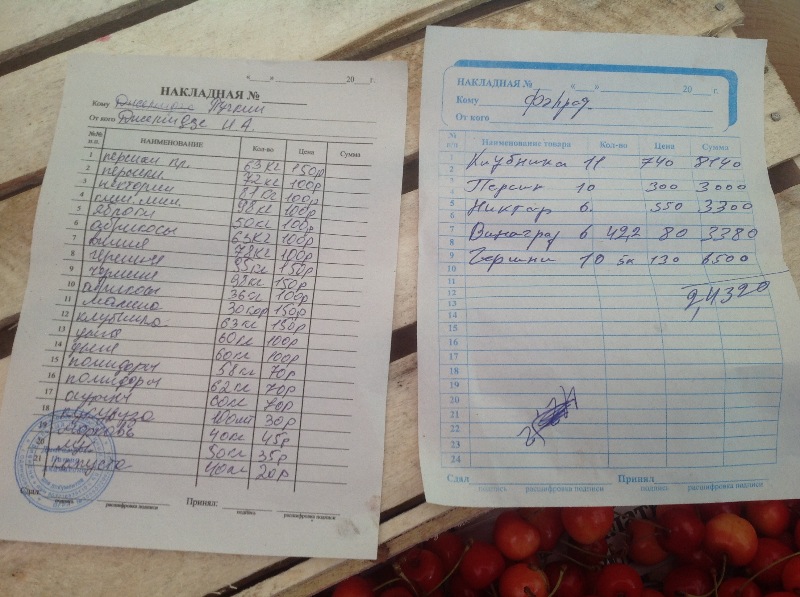 « » 20 г.
НАКЛАДНАЯ №
Кому
От кого И А.
№№ п.п. НАИМЕНОВАНИЕ Кол-во Цена Сумма
1 персики пр. 63кг 150р
2 персики 72кг 100р
3 нектарин 100р
4 98кг 100р
5 яблоки 50кг 100р
6 абрикосы 63кг 100р
7 вишня 100р
8 черешня 95кг 150р
9 черешня 98кг 150р
10 абрикосы 36кг 100р
11 малина 150р
12 клубника 63кг 150р
13 60кг 100р
14 дыня 60кг 100р
15 помидоры 58кг 70р
16 помидоры 62кг 70р
17 60кг 70р
18 кукуруза 100шт 30р
19 морковь 40кг 45р
20 лук 50кг 35р
21 капуста 40кг 20р
Сдал Принял:
подпись расшифровка подписи подпись расшифровка подписи
НАКЛАДНАЯ № « » 20 г.
Кому
От кого
№ п/п Наименование товара Кол-во Цена Сумма
1
2 Клубника 11 740 8140
3
4 Персик 10 300 3000
5
6 Никтар 6. 550 3300
7
8 Виноград 6 42,2 80 3380
9 Черешни 10 5к 130 6500
10
11
12 24320
13
14
15
16
17
18
19
20
21
22
23
24
Сдал Принял
подпись расшифровка подписи подпись расшифровка подписи